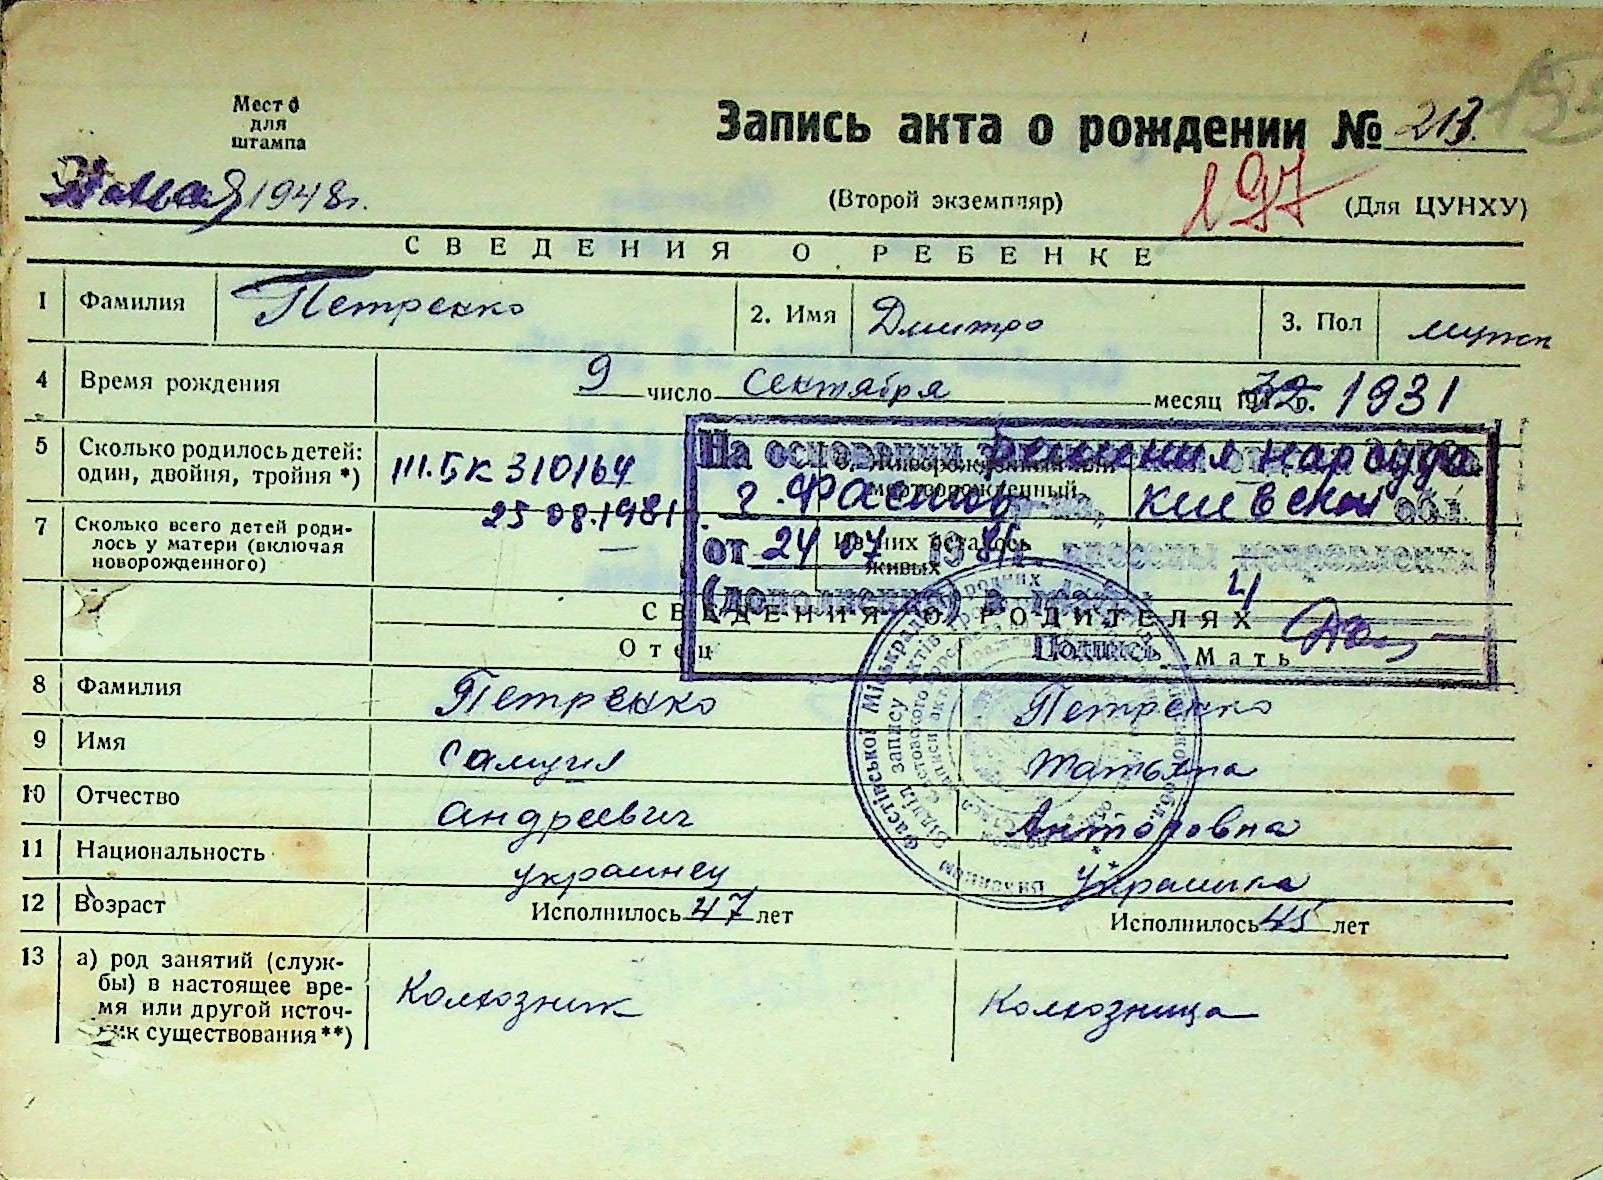 Место
для
штампа
Запись акта о рождении № 213.
мая 1948 г.
(Второй экземпляр) 197 (Для ЦУНХУ)
СВЕДЕНИЯ О РЕБЕНКЕ
1 Фамилия Петренко 2. Имя Дмитро 3. Пол мужск
4 Время рождения 9 число Сентября месяц 32 г. 1931
5 Сколько родилось детей:
один, двойня, тройня *)
III.БК 310164
25 08.1981 г.
На основании решения нарсуда
г. Фастов Киевской обл.
от 24 07 1981 г. внесены исправления
(дополнения) в графу 4
Подпись
мертворожденный
7 Сколько всего детей роди-
лось у матери (включая
новорожденного)
Из них осталось
живых
СВЕДЕНИЯ О РОДИТЕЛЯХ
Отец Мать
8 Фамилия Петренко Петренко
9 Имя Самуил Татьяна
10 Отчество Андреевич
11 Национальность украинец Украинка
12 Возраст Исполнилось 47 лет Исполнилось 45 лет
13 а) род занятий (служ-
бы) в настоящее вре-
мя или другой источ-
ник существования **)
Колхозник Колхозница